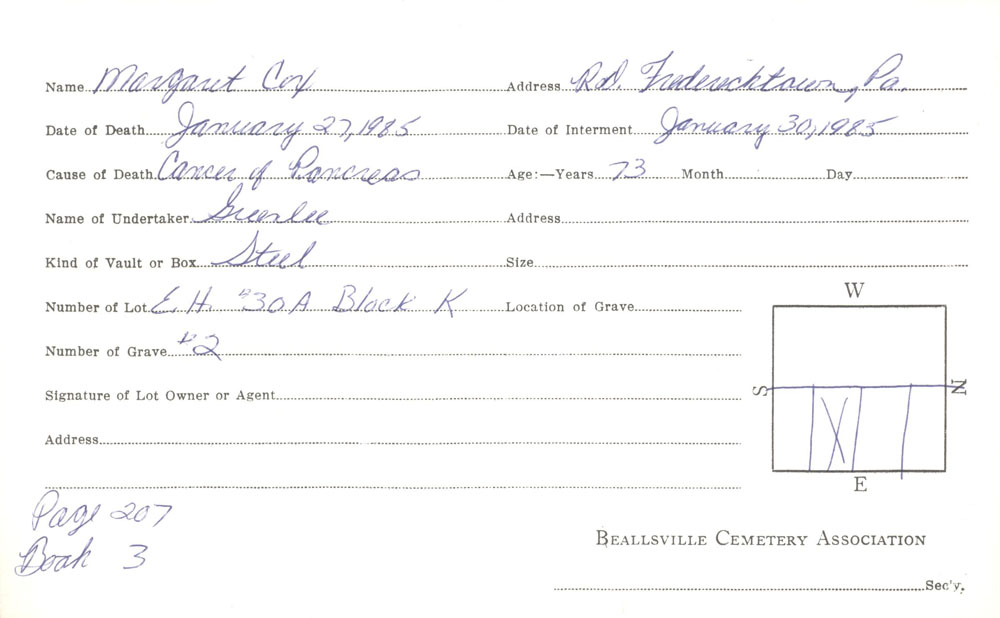 Name Margaret Cox Address R.D. Fredericktown, Pa.
Date of Death January 27, 1985 Date of Interment January 30, 1985
Cause of Death Cancer of Pancreas Age:—Years 73 Month Day
Name of Undertaker Greenlee Address
Kind of Vault or Box Steel Size
Number of Lot E. H. #30A Block K Location of Grave
W
Number of Grave #2
S N
Signature of Lot Owner or Agent
X
Address
E
Page 207
Book 3
BEALLSVILLE CEMETERY ASSOCIATION
Sec'y.